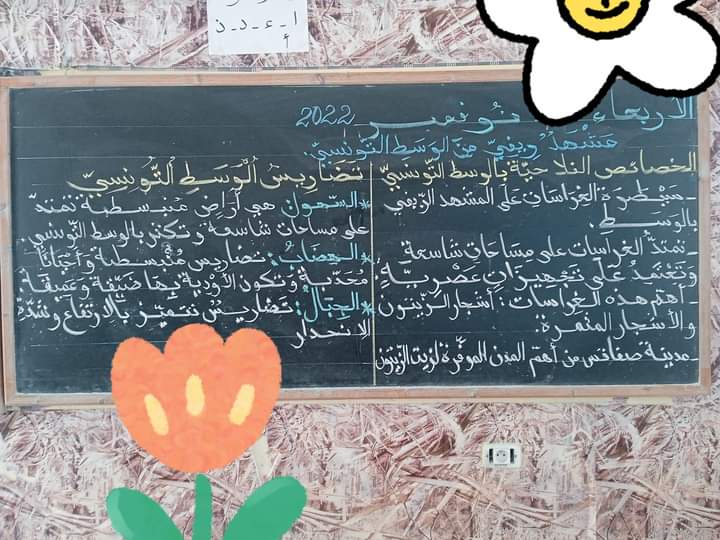 أ - ء - د - ذ
أ
الأربعاء نوفمبر 2022
مشهد ريفيّ من الوسط التّونسيّ.
الخصائص الفلاحيّة بالوسط التّونسيّ
- سيطرة الغراسات على المشهد الرّيفي
بالوسط.
- تمتدّ الغراسات على مساحات شاسعة
وتعتمد على تجهيزات عصريّة.
- أهمّ هذه الغراسات: أشجار الزّيتون
والأشجار المثمرة.
- مدينة صفاقس من أهمّ المدن الموفّرة لزيت الزّيتون
تضاريس الوسط التّونسيّ
* السّهول هي أراضٍ منبسطة تمتدّ
على مساحات شاسعة وتكثر بالوسط التّونسي.
* الهضاب: تضاريس منبسطة وأحيانا
محدّبة وتكون الأودية بها ضيّقة وعميقة.
* الجبال: تضاريس تتميّز بالارتفاع وشدّة
الانحدار